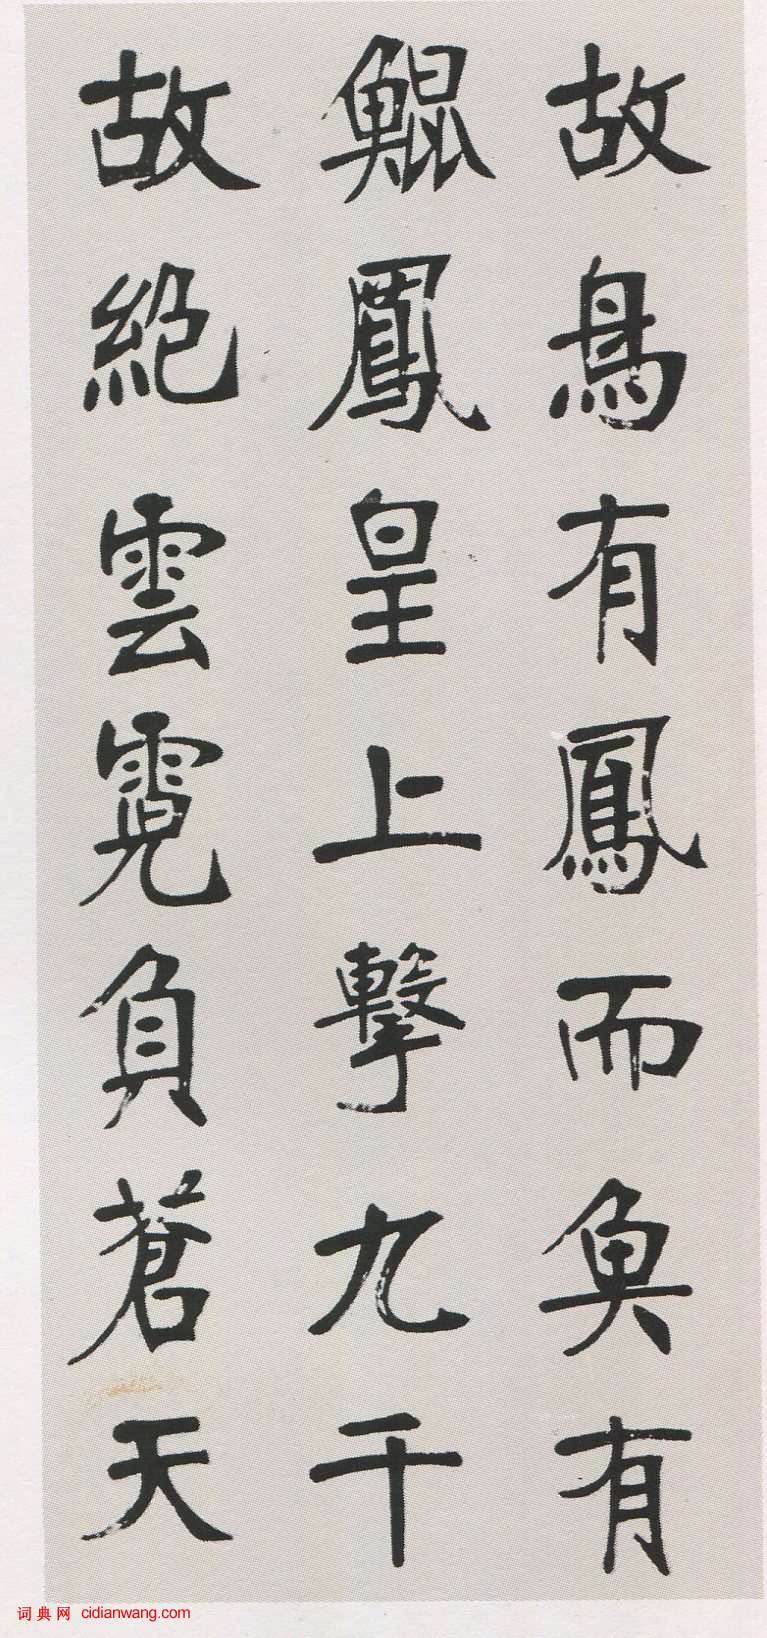 故鳥有鳳而魚有
鯤鳳皇上擊九千
故絶雲霓負蒼天
词典网 cidianwang.com